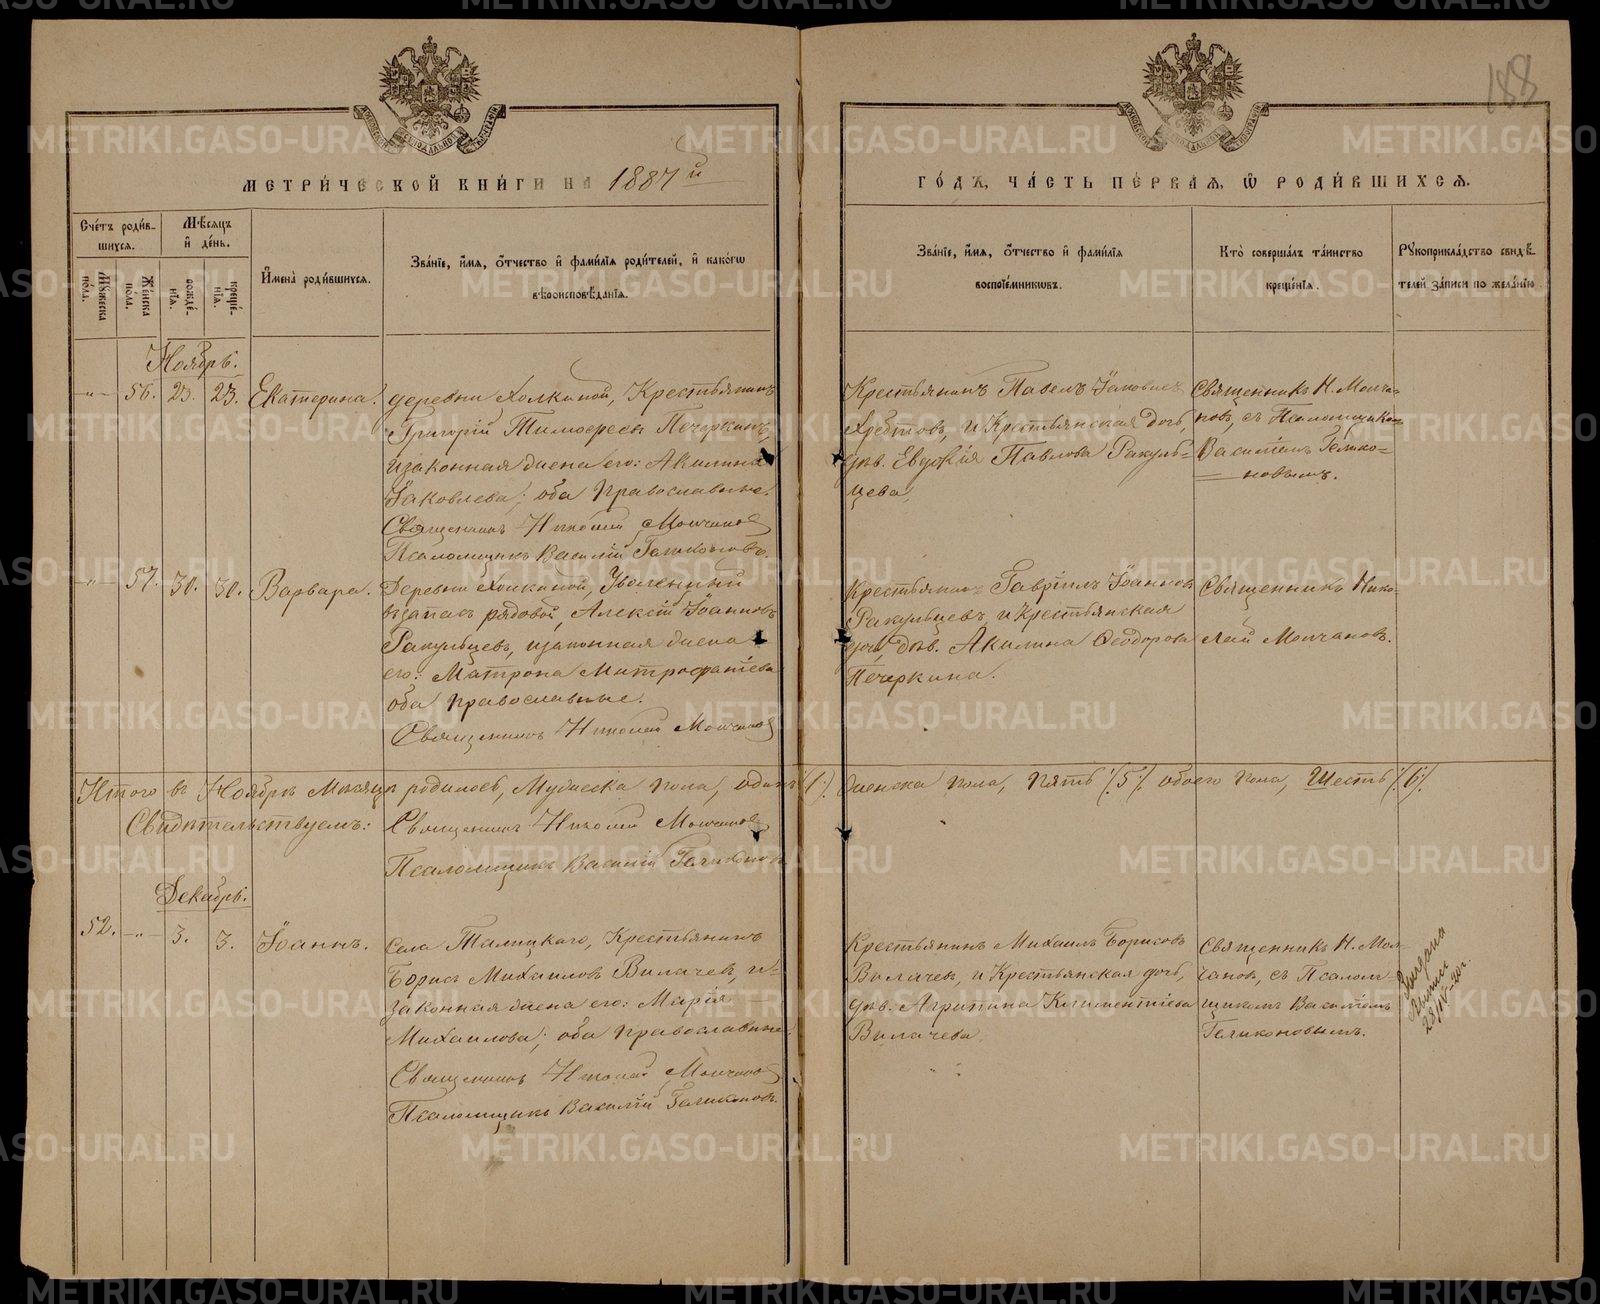 188
МЕТРИ́ЧЕСКОЙ КНИ́ГИ НА 1887й
ГО́ДЪ, ЧА́СТЬ ПЕ́РВАЯ, Ѡ҆ РОДИ́ВШИХСЯ.
Сче́тъ роди́вшихся.
Му́жеска по́ла.
Же́нска по́ла.
Мѣ́сяцъ и҆ де́нь.
рожде́нїя.
креще́нїя.
И҆мена̀ роди́вшихся.
Зва́нїе, и҆́мя, ѻ҆́тчество и҆ фами́лїя роди́телей, и҆ како́гѡ
вѣроисповѣ́данїя.
Зва́нїе, и҆́мя, ѻ҆́тчество и҆ фами́лїя
воспрїе́мниковъ.
Кто̀ соверша́лъ та́инство
креще́нїя.
Рꙋкоприкла́дство свидѣ́-
телей за́писи по жела́нїю.
Ноябрь.
-"- 56. 23. 23. Екатерина.
деревни Холкиной, Крестьянинъ
Григорій Тимофеевъ Печеркинъ,
и законная жена его: Акилина
Іаковлева; оба православные.
Священникъ Николай Молчановъ
Псаломщикъ Василій Геликоновъ.
Крестьянинъ Павелъ Іаковлевъ
Хребтовъ, и Крестьянская дочь,
дѣв. Евдокія Павлова Ракуль-
цева,
Священникъ Н. Молча-
новъ, съ Псаломщикомъ
Василіемъ Гелико-
новымъ.
-"- 57. 30. 30. Варвара.
Деревни Холкиной, Уволенный
въ запасъ рядовой, Алексій Іоанновъ
Ракульцевъ, и законная жена
его: Матрона Митрофанiева
оба православные.
Священникъ Николай Молчановъ
Крестьянинъ Гавріилъ Іоанновъ
Ракульцевъ, и Крестьянская
дочь дѣв. Акилина Ѳеодорова
Печеркина.
Священникъ Нико-
лай Молчановъ.
Итого въ Ноябрѣ Мѣсяцѣ родилось, Мужеска пола, одинъ /1/. Женска пола, пять /5/. обоего пола, Шесть /6/.
Свидѣтельствуемъ: Священникъ Николай Молчановъ
Псаломщикъ Василій Геликоновъ
Декабрь.
52. -"- 3. 3. Іоаннъ.
Села Талицкаго, Крестьянинъ
Борисъ Михаиловъ Вилачевъ, и
законная жена его: Марія
Михаилова; оба православные
Священникъ Николай Молчановъ
Псаломщикъ Василій Геликоновъ.
Крестьянинъ Михаилъ Борисовъ
Вилачевъ, и Крестьянская дочь,
дѣв. Агрипина Климентіева
Вилачева
Священникъ Н. Мол-
чановъ, съ Псалом-
щикомъ Василіемъ
Геликоновымъ.
METRIKI.GASO-URAL.RU